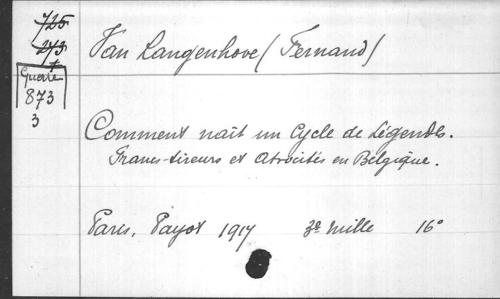 725
273
+
Guerre
873
3
Van Langenhove (Fernand)
Comment naît un Cycle de Légendes.
Francs-tireurs et Atrocités en Belgique.
Paris, Payot 1917 3e mille 16°